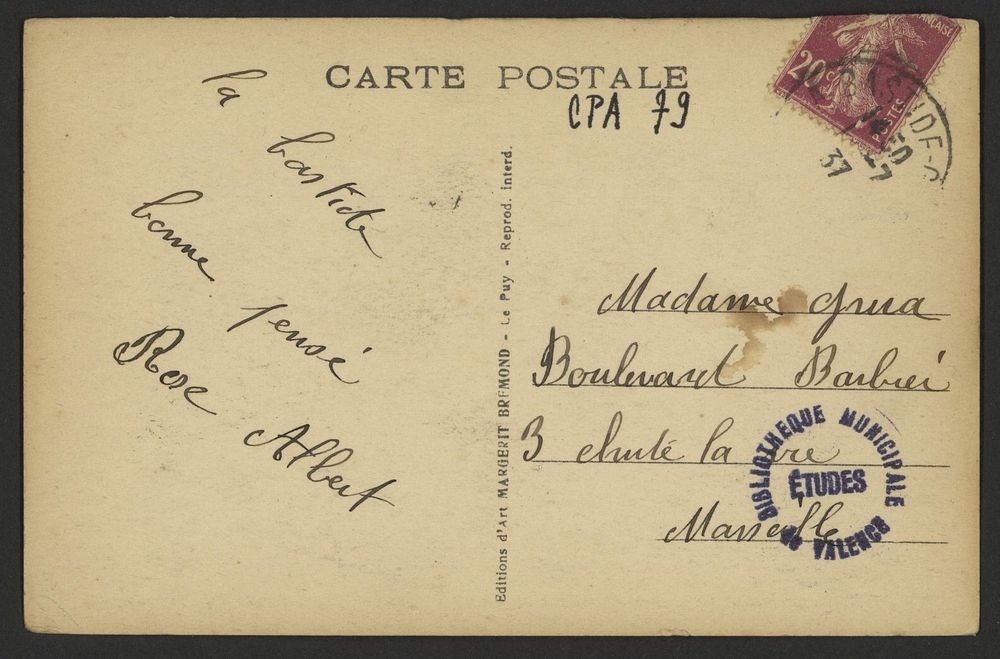 CARTE POSTALE
CPA 79
la
bastide
bonne pensé
Rose Albert
Editions d'Art MARGERIT BREMOND - Le Puy - Reprod. interd.
20c
POSTES
37
Madame Grua
Boulevard Barbier
3 chuté la vre
Marseille
BIBLIOTHEQUE MUNICIPALE
ÉTUDES
de VALENCE